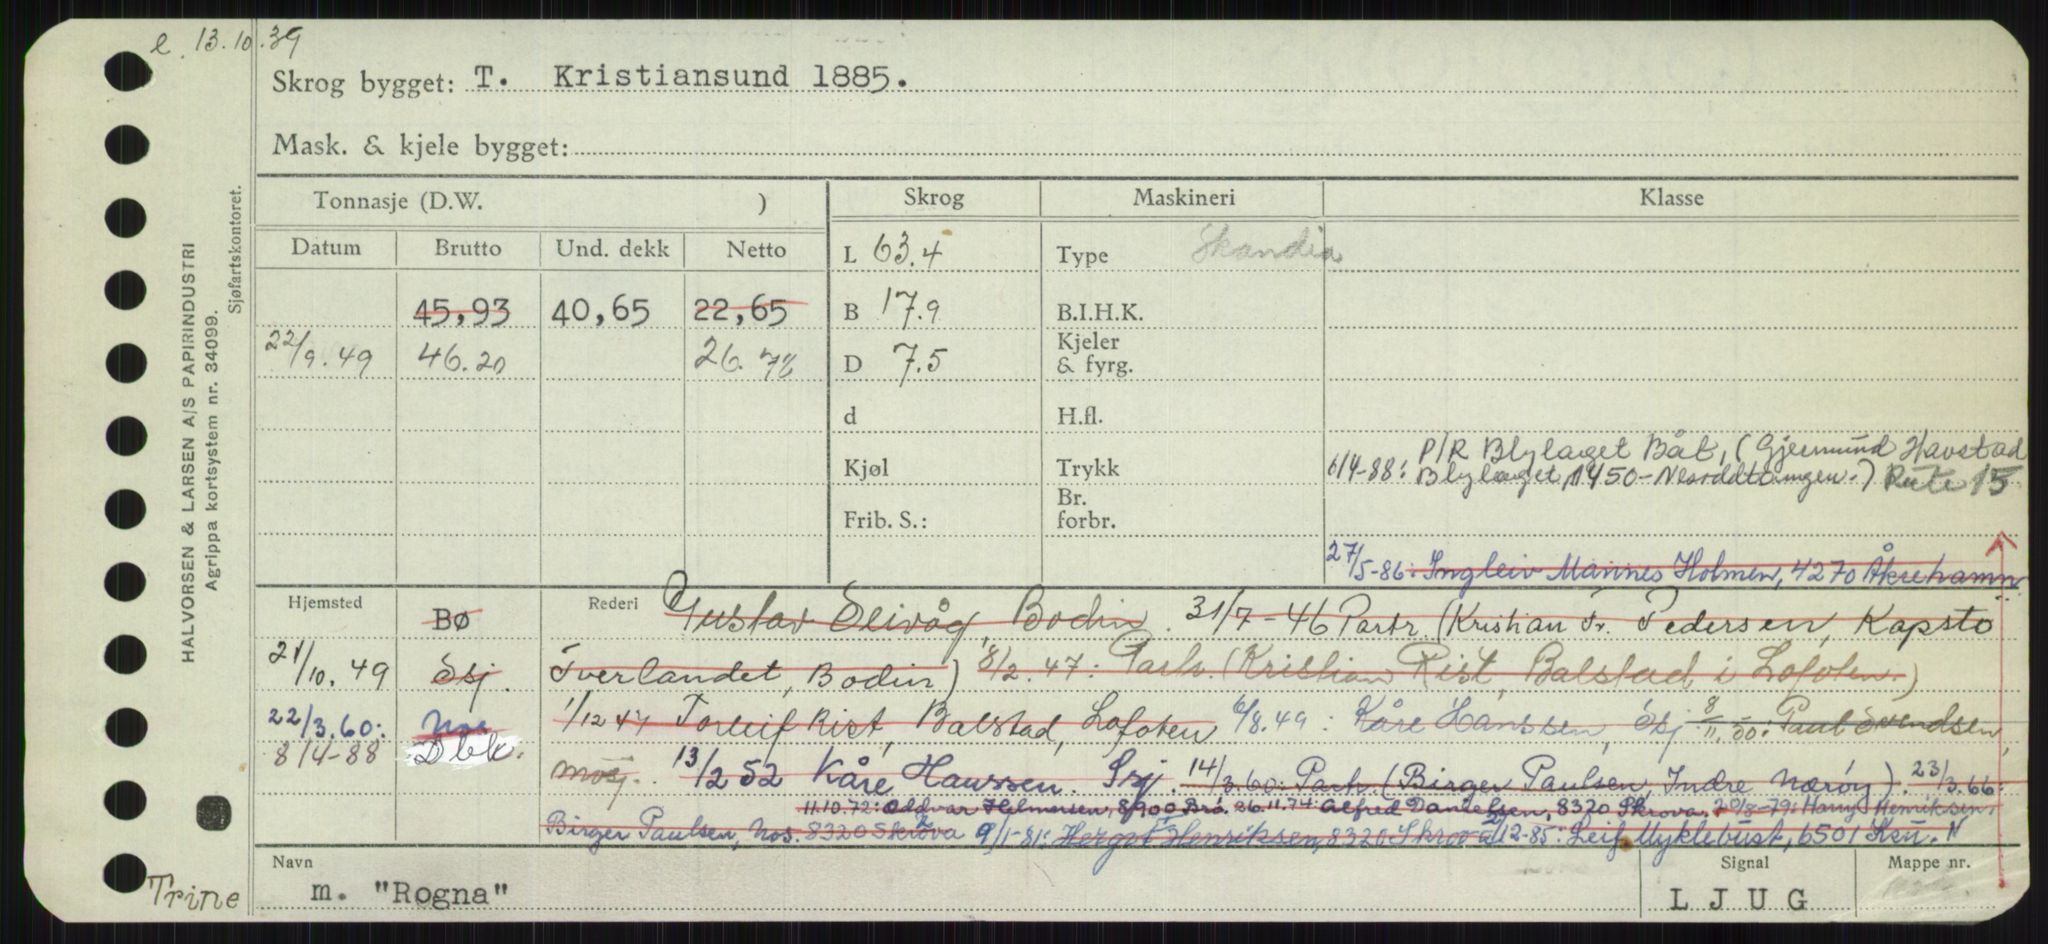 e 13.10.39
Skrog bygget: T. Kristiansund 1885.
Mask. & kjele bygget:
HALVORSEN & LARSEN A/S PAPIRINDUSTRI
Agrippa kortsystem nr. 34099.
Sjøfartskontoret.
Tonnasje (D.W. ) Skrog Maskineri Klasse
Datum Brutto Und. dekk Netto L 63.4 Type Skandia
45,93 40,65 22,65 B 17.9 B.I.H.K.
22/9.49 46.20 26.78 D 7.5 Kjeler & fyrg.
d H.fl.
Kjøl Trykk 6/4-88: P/R Blylaget Båt, (Gjermund Havstad
Blylaget, 1450-Nesoddtangen.) Rute 15
Frib. S.: Br. forbr.
27/5-86: Ingleiv Mannes Holmen, 4270 Åkrehamn
Hjemsted Bø Rederi Gustav Seivåg, Bodin. 31/7-46 Partr. (Kristian Fr. Pedersen, Kapsto
21/10.49 Ssj. Tverlandet, Bodin) 8/2.47. Partr. (Kristian Rist, Balstad i Lofoten.)
22/3.60: Nos 1/12 47 Torleif Rist, Balstad, Lofoten 6/8.49: Kåre Hanssen, Ssj 8/11.50: Paul Svendsen,
8/4-88 Dbk. Mosj. 13/2 52 Kåre Hanssen. Ssj. 14/3.60: Partr. (Birger Paulsen, Indre Nærøy). 23/3.66:
11.10.72: Oddvar Helmersen, 8900, Brø. 26.11.74: Alfred Danielsen, 8320 Skrova. 20/8-79: Harry Henriksen
Birger Paulsen, Nos. 8320 Skrova 9/1-81: Hergot Henriksen, 8320 Skrova 2/12-85: Leif Myklebust, 6501 Ksu. N
Navn m. "Rogna" Signal LJUG Mappe nr.
Trine